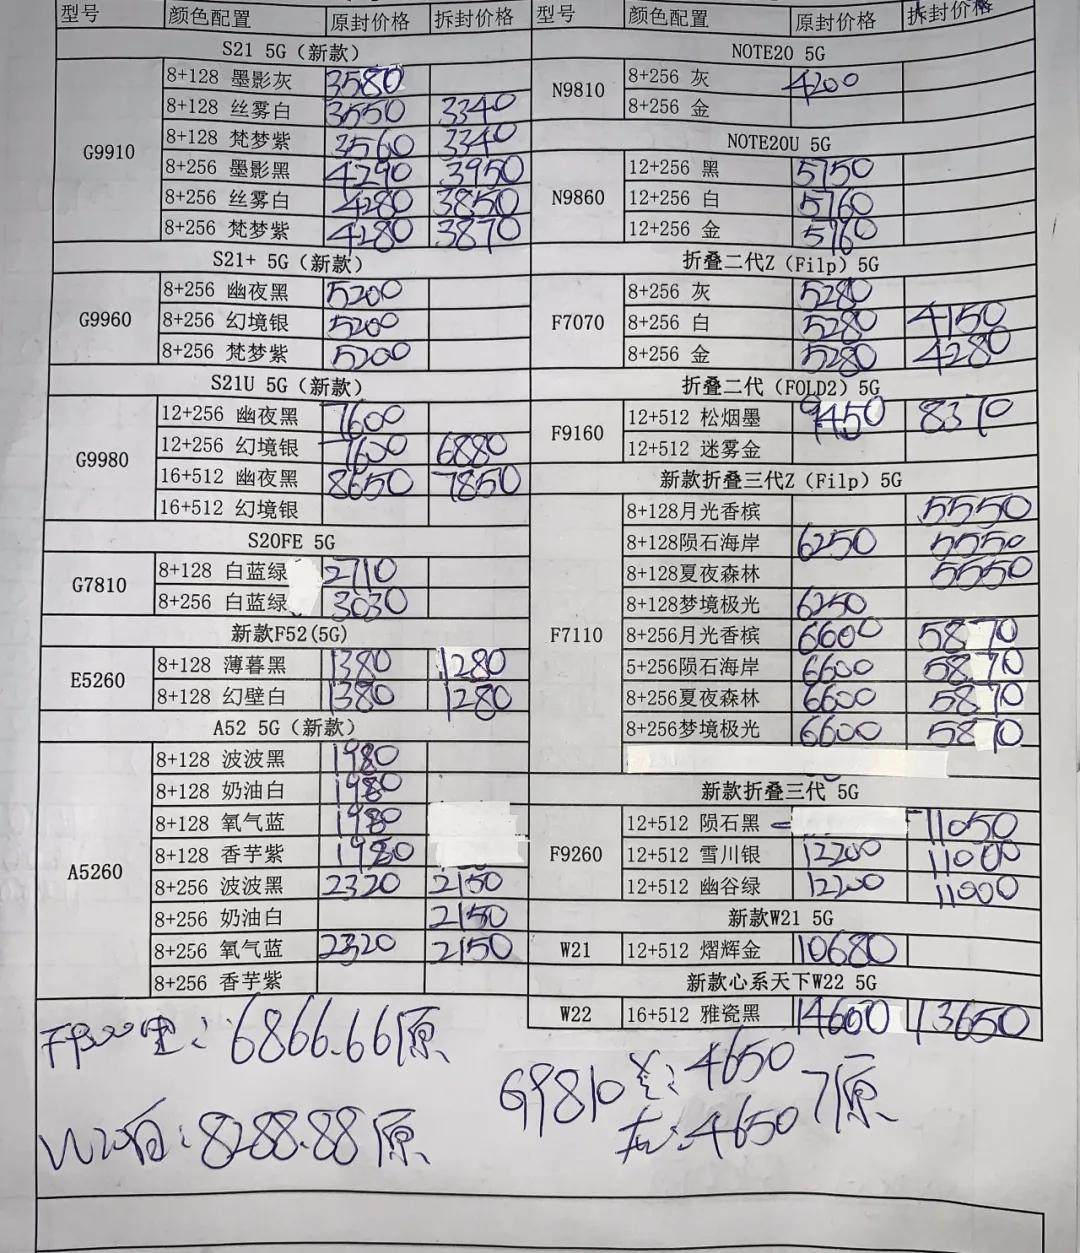 型号 颜色配置 原封价格 拆封价格
S21 5G（新款）
G9910
8+128 墨影灰 3580
8+128 丝雾白 3550 3340
8+128 梵梦紫 3560 3340
8+256 墨影黑 4290 3950
8+256 丝雾白 4280 3850
8+256 梵梦紫 4280 3870
S21+ 5G（新款）
G9960
8+256 幽夜黑 5200
8+256 幻境银 5200
8+256 梵梦紫 5200
S21U 5G（新款）
G9980
12+256 幽夜黑 7600
12+256 幻境银 7600 6880
16+512 幽夜黑 8650 7850
16+512 幻境银
S20FE 5G
G7810
8+128 白蓝绿 2710
8+256 白蓝绿 3030
新款F52(5G)
E5260
8+128 薄暮黑 1380 1280
8+128 幻壁白 1380 1280
A52 5G（新款）
A5260
8+128 波波黑 1980
8+128 奶油白 1980
8+128 氧气蓝 1980
8+128 香芋紫 1980
8+256 波波黑 2320 2150
8+256 奶油白 2150
8+256 氧气蓝 2320 2150
8+256 香芋紫
型号 颜色配置 原封价格 拆封价格
NOTE20 5G
N9810
8+256 灰 4200
8+256 金
NOTE20U 5G
N9860
12+256 黑 5750
12+256 白 5760
12+256 金 5760
折叠二代Z（Filp）5G
F7070
8+256 灰 5280
8+256 白 5280 4150
8+256 金 5280 4280
折叠二代（FOLD2）5G
F9160
12+512 松烟墨 9450 8370
12+512 迷雾金
新款折叠三代Z（Filp）5G
F7110
8+128月光香槟 5550
8+128陨石海岸 6250 5550
8+128夏夜森林 5550
8+128梦境极光 6250
8+256月光香槟 6600 5870
5+256陨石海岸 6600 5870
8+256夏夜森林 6600 5870
8+256梦境极光 6600 5870
新款折叠三代 5G
F9260
12+512 陨石黑 11050
12+512 雪川银 12200 11000
12+512 幽谷绿 12200 11000
新款W21 5G
W21 12+512 熠辉金 10680
新款心系天下W22 5G
W22 16+512 雅瓷黑 14600 13650
黑：6866.66原
白：8288.88原
G9810 4650
灰：4650 原